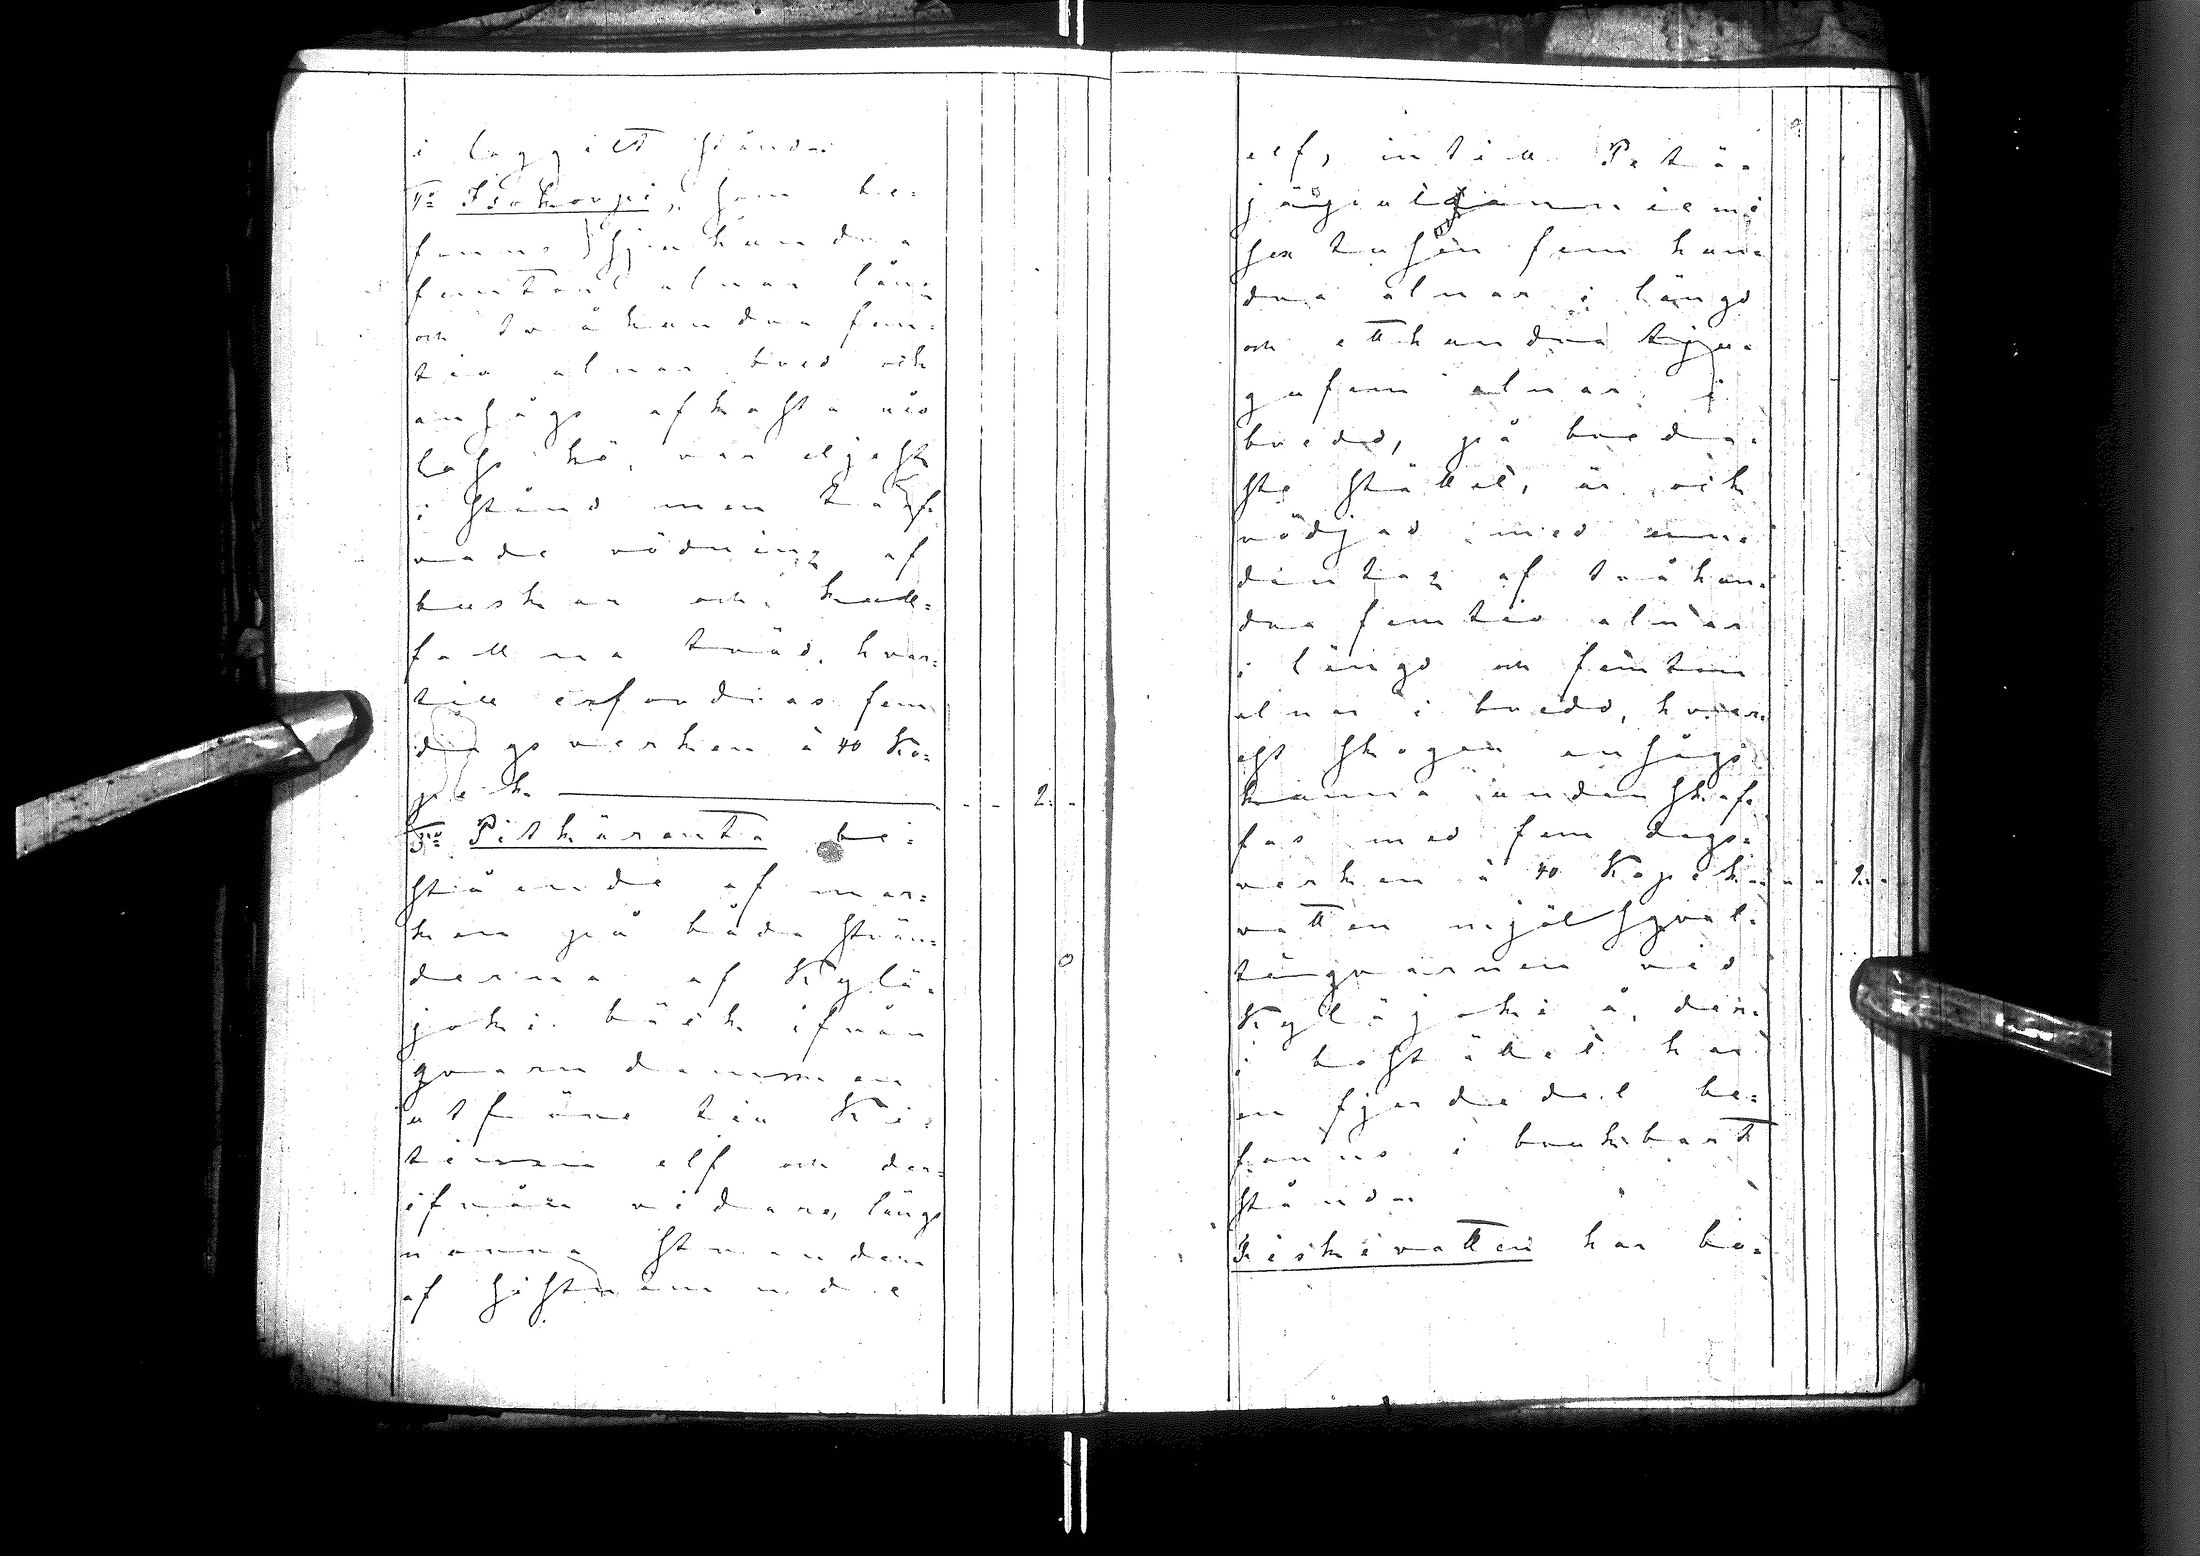 i laggilt stånd.
4:o Isokorpi, som be-
fanns sjuhundra
femton alnar lång
och tvåhundra fem-
tio alnar bred och
ansågs afkasta två
lass hö, var eljest
i stånd men behöf-
vade rödning af
buskar och kull-
fallna träd, hvar-
till erfordras fem
dagsverken à 40 Ko-
pek. 2. -
5:o Pitkäranta be-
stående af mar-
ken på båda strän-
derna af Kylä-
joki bäck ifrån
qvarndammen
utföre till Ki-
tinen elf och der-
ifrån vidare, längs
norra stranden
af sistnämnde
elf, intill Petä-
jäguljänniemi
sex tusen fem hun-
dra alnar i längd
och etthundra tju-
gufem alnar i
bredd, på breda-
ste stället, är och
rödjad med enn.
dentag af tvåhun-
dra femtio alnar
i längd och femton
alnar i bredd, hvar-
est skogen ansågs
kunna undanskaf-
fas med fem dags-
verken à 40 Kopek. 2. -
vatten mjölsqval-
tängvarnen vid
Kyläjoki å, der-
i bostället har
en fjerdedel be-
fanns i brukbart
stånd.
Fiskevatten har bo-